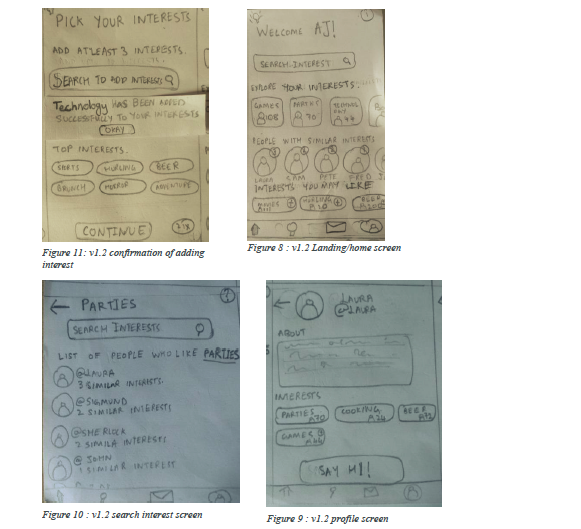 PICK YOUR INTERESTS
ADD ATLEAST 3 INTERESTS.
SEARCH TO ADD INTERESTS
Technology HAS BEEN ADDED
SUCCESSFULLY TO YOUR INTERESTS
OKAY
TOP INTERESTS.
HURLING
BEER
BRUNCH
HORROR
ADVENTURE
CONTINUE
Figure 11: v1.2 confirmation of adding
interest
WELCOME AJ!
SEARCH INTEREST
EXPLORE YOUR INTERESTS.
GAMES
108
70
44
PEOPLE WITH SIMILAR INTERESTS
LAURA
CAM
PETE
FRED
INTERESTS YOU MAY LIKE
MOVIES
HURLING
BEER
Figure 8 : v1.2 Landing/home screen
← PARTIES
SEARCH INTERESTS
LIST OF PEOPLE WHO LIKE PARTIES
@LAURA
3 SIMILAR INTERESTS.
@SIGMUND
2 SIMILAR INTERESTS
@SHERLOCK
2 SIMILA INTERESTS
@ JOHN
1 SIMILAR INTEREST
Figure 10 : v1.2 search interest screen
← LAURA
@LAURA
ABOUT
INTERESTS
PARTIES
70
COOKING
24
BEER
GAMES
SAY HI!
Figure 9 : v1.2 profile screen